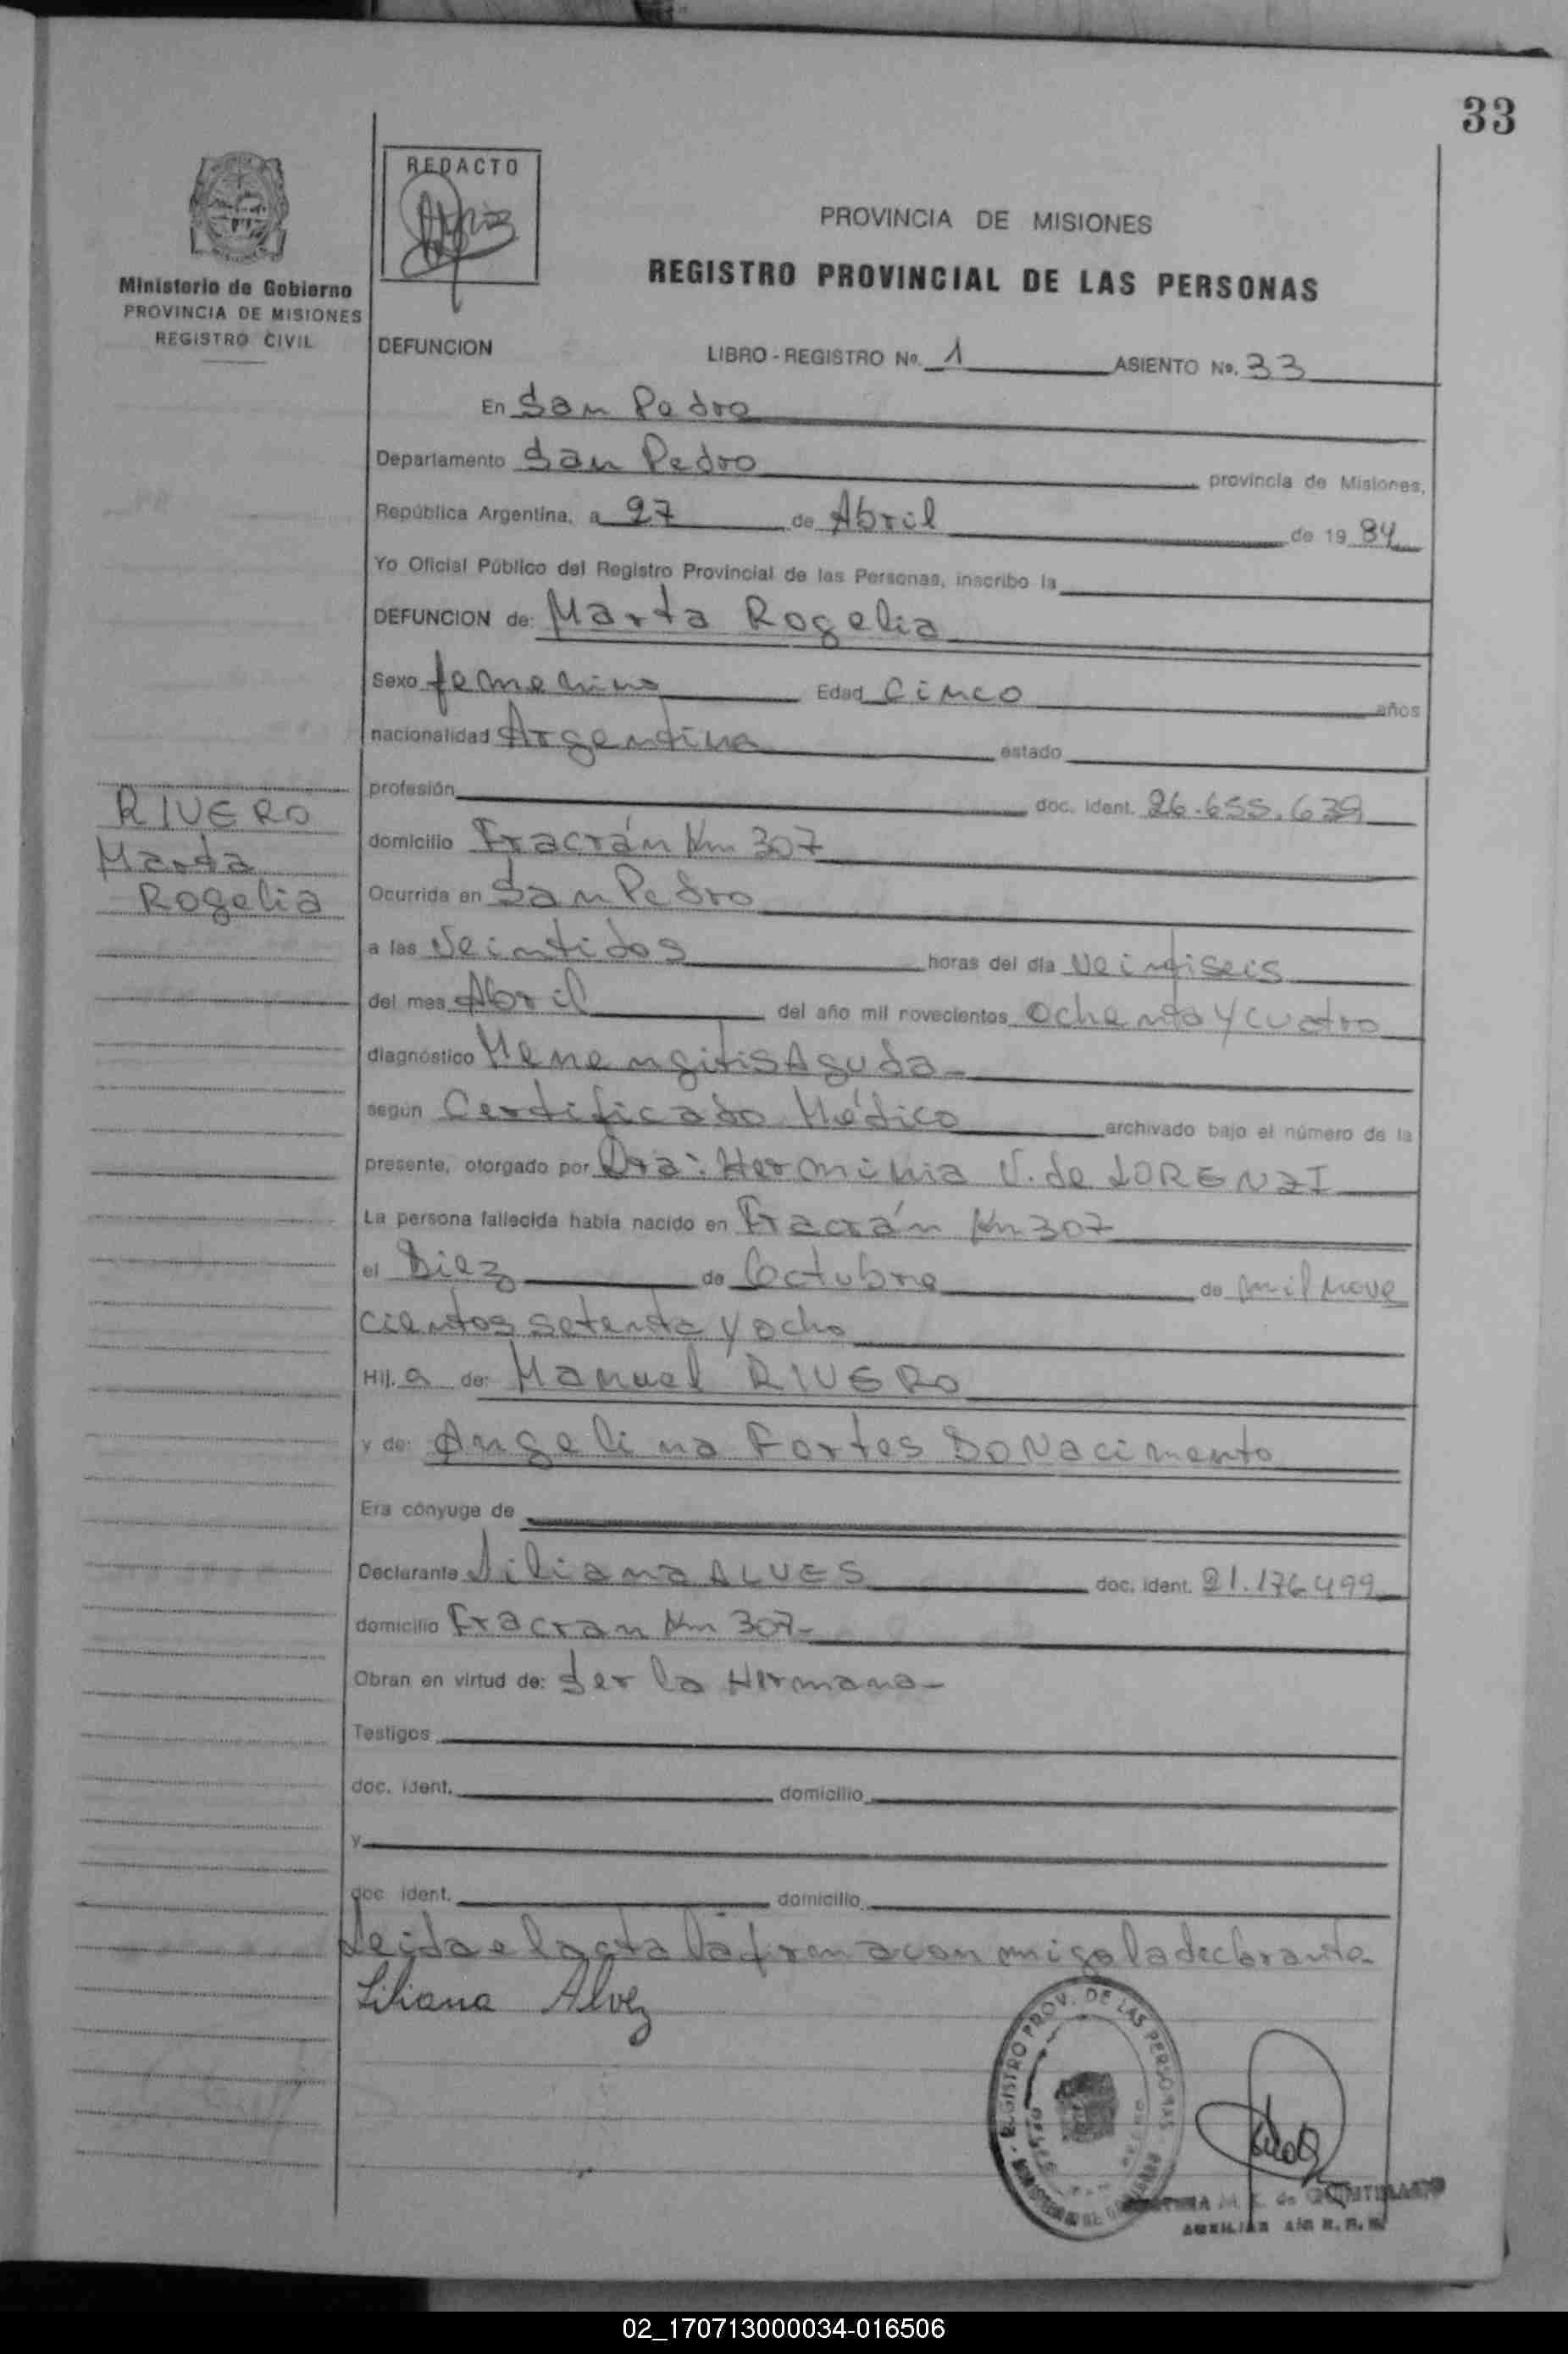 33
REDACTO
Ministerio de Gobierno
PROVINCIA DE MISIONES
REGISTRO CIVIL
PROVINCIA DE MISIONES
REGISTRO PROVINCIAL DE LAS PERSONAS
DEFUNCION LIBRO - REGISTRO Nº. 1 ASIENTO Nº. 33
En San Pedro
Departamento San Pedro provincia de Misiones,
República Argentina, a 27 de Abril de 19 84
Yo Oficial Público del Registro Provincial de las Personas, inscribo la
DEFUNCION de: Marta Rogelia
Sexo femenino Edad Cinco años
nacionalidad Argentina estado
profesión doc. ident. 26.655.639
RIVERO
Marta
Rogelia
domicilio Fracrán Km 307
Ocurrida en San Pedro
a las Veintidos horas del día Veintiseis
del mes Abril del año mil novecientos Ochenta y cuatro
diagnóstico Menengitis Aguda-
según Certificado Médico archivado bajo el número de la
presente, otorgado por Dra: Herminia V. de LORENZI
La persona fallecida había nacido en Fracrán Km 307
el Diez de Octubre de mil nove
cientos setenta y ocho
Hij. a de: Manuel RIVERO
y de: Angelina Fortes Do Nacimento
Era cónyuge de
Declarante Liliana ALVES doc. ident. 21.176.499
domicilio Fracran Km 307-
Obran en virtud de: Ser la Hermana-
Testigos
doc. ident. domicilio
y
doc. ident. domicilio
Leida el acta la firma conmigo la declarante-
Liliana Alvez
REGISTRO PROV. DE LAS PERSONAS
MINISTERIO DE GOBIERNO
AUXILIAR
02_170713000034-016506